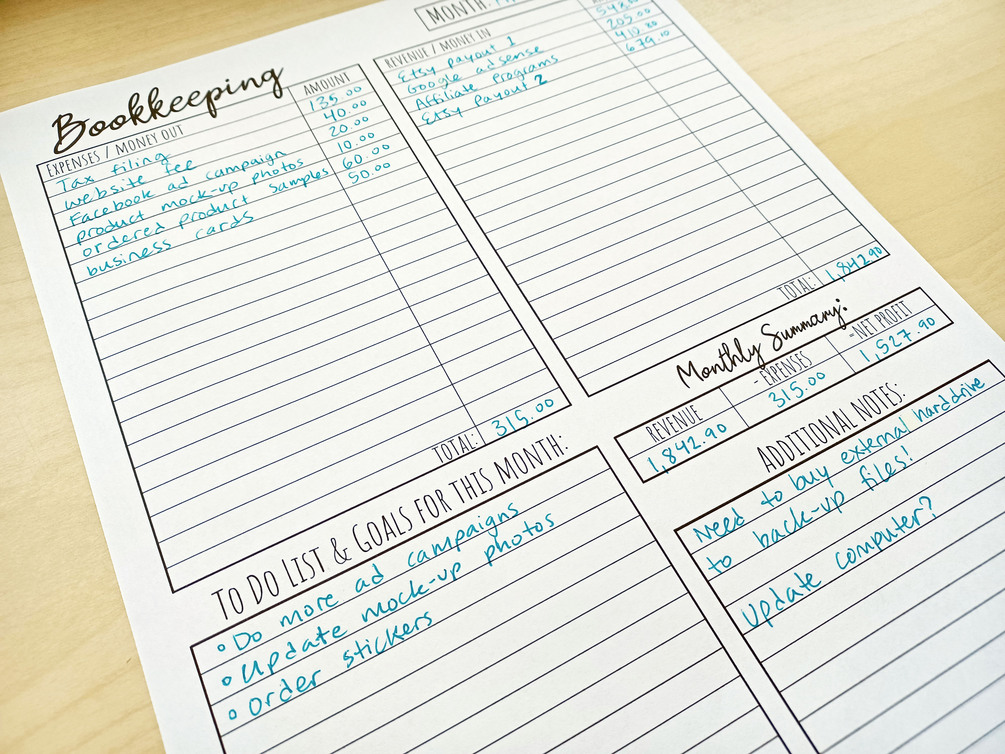 MONTH:
Bookkeeping
EXPENSES / MONEY OUT AMOUNT
Tax filing 135.00
website fee 40.00
Facebook ad campaign 20.00
product mock-up photos 10.00
ordered product samples 60.00
business cards 50.00
TOTAL: 315.00
REVENUE / MONEY IN
Etsy payout 1 548.00
Google adsense 205.00
Affiliate Programs 410.80
Etsy Payout 2 679.10
TOTAL: 1,842.90
Monthly Summary:
REVENUE - EXPENSES =NET PROFIT
1,842.90 315.00 1,527.90
TO DO LIST & GOALS FOR THIS MONTH:
o Do more ad campaigns
o Update mock-up photos
o Order stickers
ADDITIONAL NOTES:
Need to buy external harddrive
to back-up files!
Update computer?